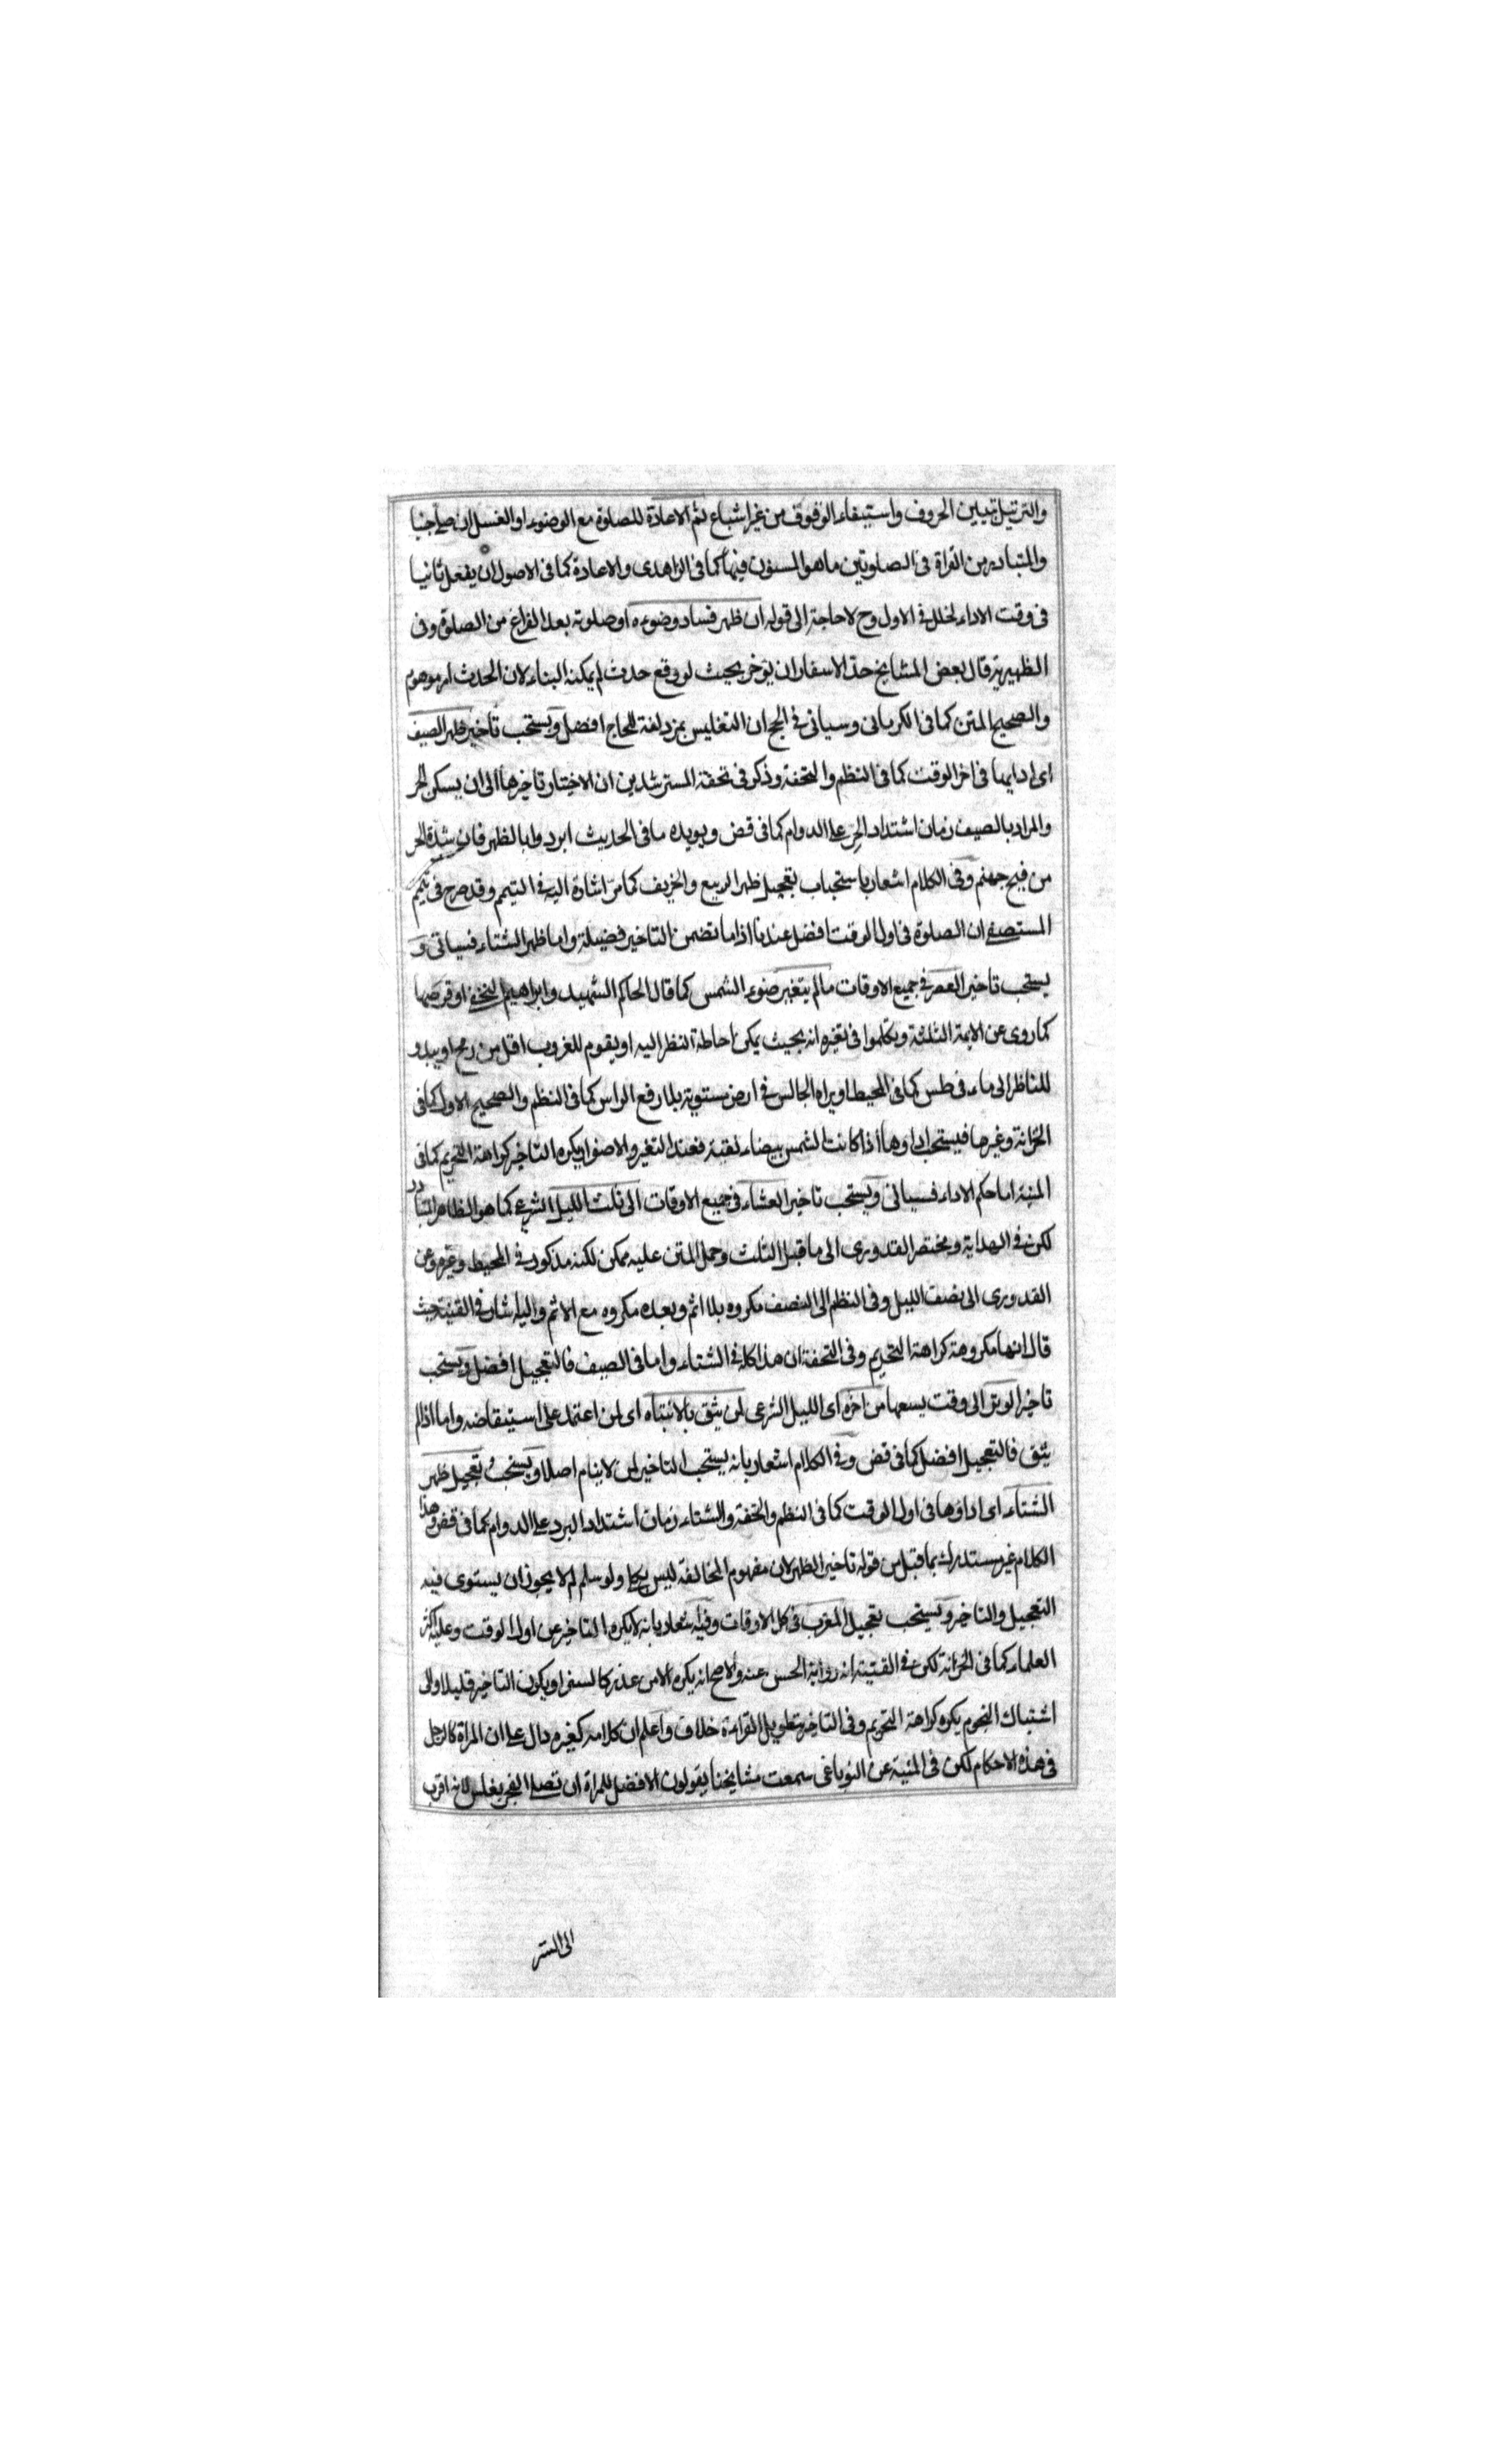 والترتيل تبيين الحروف واستيفاء الوقوف من غير اشباع ثم الاعادة للصلوة مع الوضوء او الغسل ان صلى جنبا
والمتبادر من القراة فى الصلوتين ما هو المسنون فيهما كما فى الزاهدى والاعادة كما فى الاصول ان يفعل ثانيا
فى وقت الاداء لخلل فى الاول وح لا حاجة الى قوله ان ظهر فساد وضوءه او صلوته بعد الفراغ من الصلوة وفى
الظهيرية قال بعض المشايخ حد الاسفار ان يؤخر بحيث لو وقع حدث لم يمكنه البناء لان الحدث امر موهوم
والصحيح المتن كما فى الكرمانى وسياتى فى الحج ان التغليس بمزدلفة للحاج افضل ويستحب تاخير ظهر الصيف
اى ادايها فى اخر الوقت كما فى النظم والتحفة وذكر فى تحفة المسترشدين ان الاختيار تاخيرها الى ان يسكن الحر
والمراد بالصيف زمان اشتداد الحر على الدوام كما فى قض ويويده ما فى الحديث ابردوا بالظهر فان شدة الحر
من فيح جهنم وفى الكلام اشعار باستحباب تعجيل ظهر الربيع والخريف كما مر اشارة اليه فى التيمم وقد صرح فى تيمم
المستصفى ان الصلوة فى اول الوقت افضل عندنا اذا ما تضمن التاخير فضيلة واما ظهر الشتاء فسياتى و
يستحب تاخير العصر فى جميع الاوقات ما لم يتغير ضوء الشمس كما قال الحاكم الشهيد وابراهيم النخعى او قرصها
كما روى عن الايمة الثلثة وتكلموا فى تغيره انه بحيث يمكن احاطة النظر اليه او يقوم للغروب اقل من رمح او يبدو
للناظر الى ماء فى طس كما فى المحيط او يراه الجالس فى ارض مستوية بلا رفع الراس كما فى النظم والصحيح الاول كما فى
الخزانة وغيرها فيستحب اداوها اذا كانت الشمس بيضاء نقية فعند التغير والاصفرار يكره التاخير كراهة التحريم كما فى
المنية اما حكم الاداء فسياتى ويستحب تاخير العشاء فى جميع الاوقات الى ثلث الليل الشرعى كما هو الظاهر المتبادر
لكن فى الهداية ومختصر القدورى الى ما قبل الثلث وحمل المتن عليه ممكن لكنه مذكور فى المحيط وغيره وعن
القدورى الى نصف الليل وفى النظم الى النصف مكروه بلا اثم وبعده مكروه مع الاثم واليه اشار فى القنية حيث
قال انها مكروهة كراهة التحريم وفى التحفة ان هذا كله فى الشتاء واما فى الصيف فالتعجيل افضل ويستحب
تاخير الوتر الى وقت يسعها من اخره اى الليل الشرعى لمن يثق بالانتباه اى لمن اعتمد على استيقاضه واما اذا لم
يثق فالتعجيل افضل كما فى قض وفى الكلام اشعار بانه يستحب التاخير لمن لا ينام اصلا ويستحب تعجيل ظهر
الشتاء اى اداؤها فى اول الوقت كما فى النظم والتحفة والشتاء زمان اشتداد البرد على الدوام كما فى قض وهذا
الكلام غير مستدرك بما قبل من قوله تاخير الظهر لان مفهوم المخالفة ليس بكلى ولو سلم لم لا يجوز ان يستوى فيه
التعجيل والتاخير ويستحب تعجيل المغرب فى كل الاوقات وفيه اشعار بانه لا يكره التاخير عن اول الوقت وعليه اكثر
العلماء كما فى الخزانة لكن فى القنية انه رواية الحسن عنه والاصح انه يكره الا من عذر كالسفر او يكون التاخير قليلا والى
اشتباك النجوم يكره كراهة التحريم وفى التاخير بتطويل القراءة خلاف واعلم ان كلامه كغيره دال على ان المراة كالرجل
فى هذه الاحكام لكن فى المنية عن النوباغى سمعت مشايخنا يقولون الافضل للمراة ان تصلى الفجر بغلس لانه اقرب
الى الستر